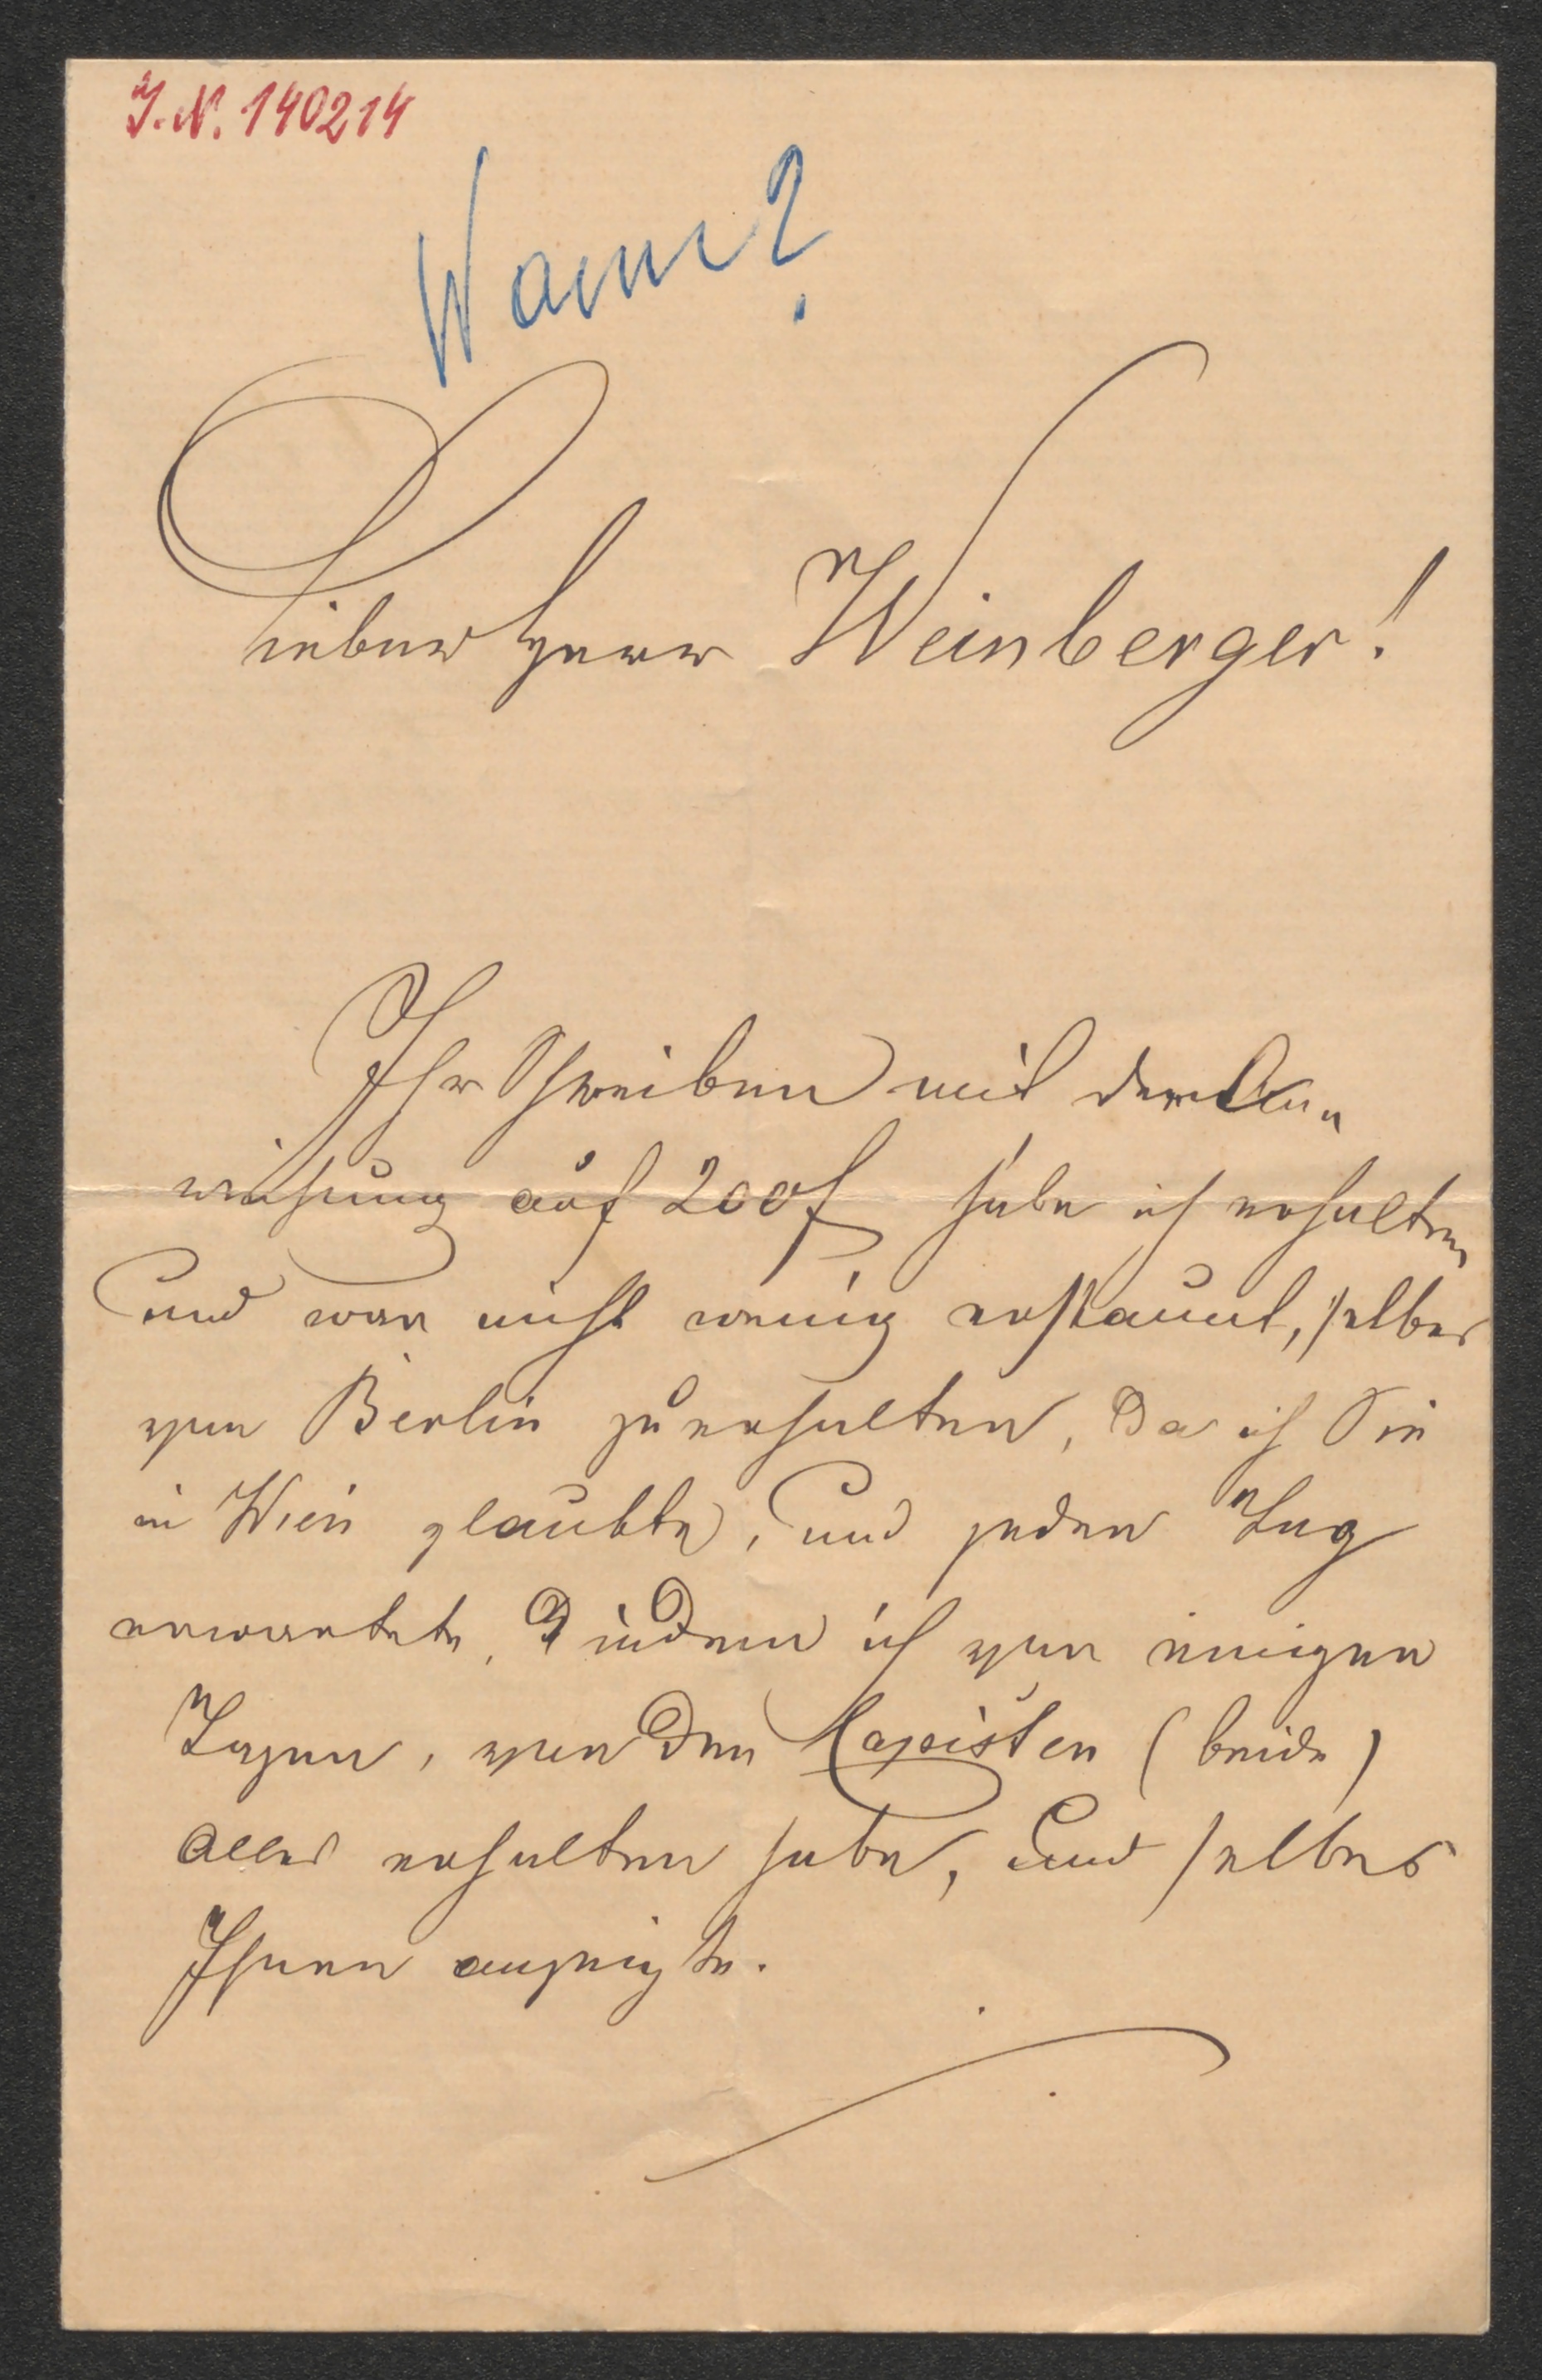 I.N. 140214
Wann?
Lieber Herr Weinberger!
Ihr Schreiben mit der An„
weisung auf 200 f habe ich erhalten
und war nicht wenig erstaunt, selbes
von Berlin zu erhalten, da ich Sie
in Wien glaubte, und jeden Tag
erwartete, indem ich vor einigen
Tagen, von den Copisten (beide)
alles erhalten habe, und selbes
Ihnen anzeigte.